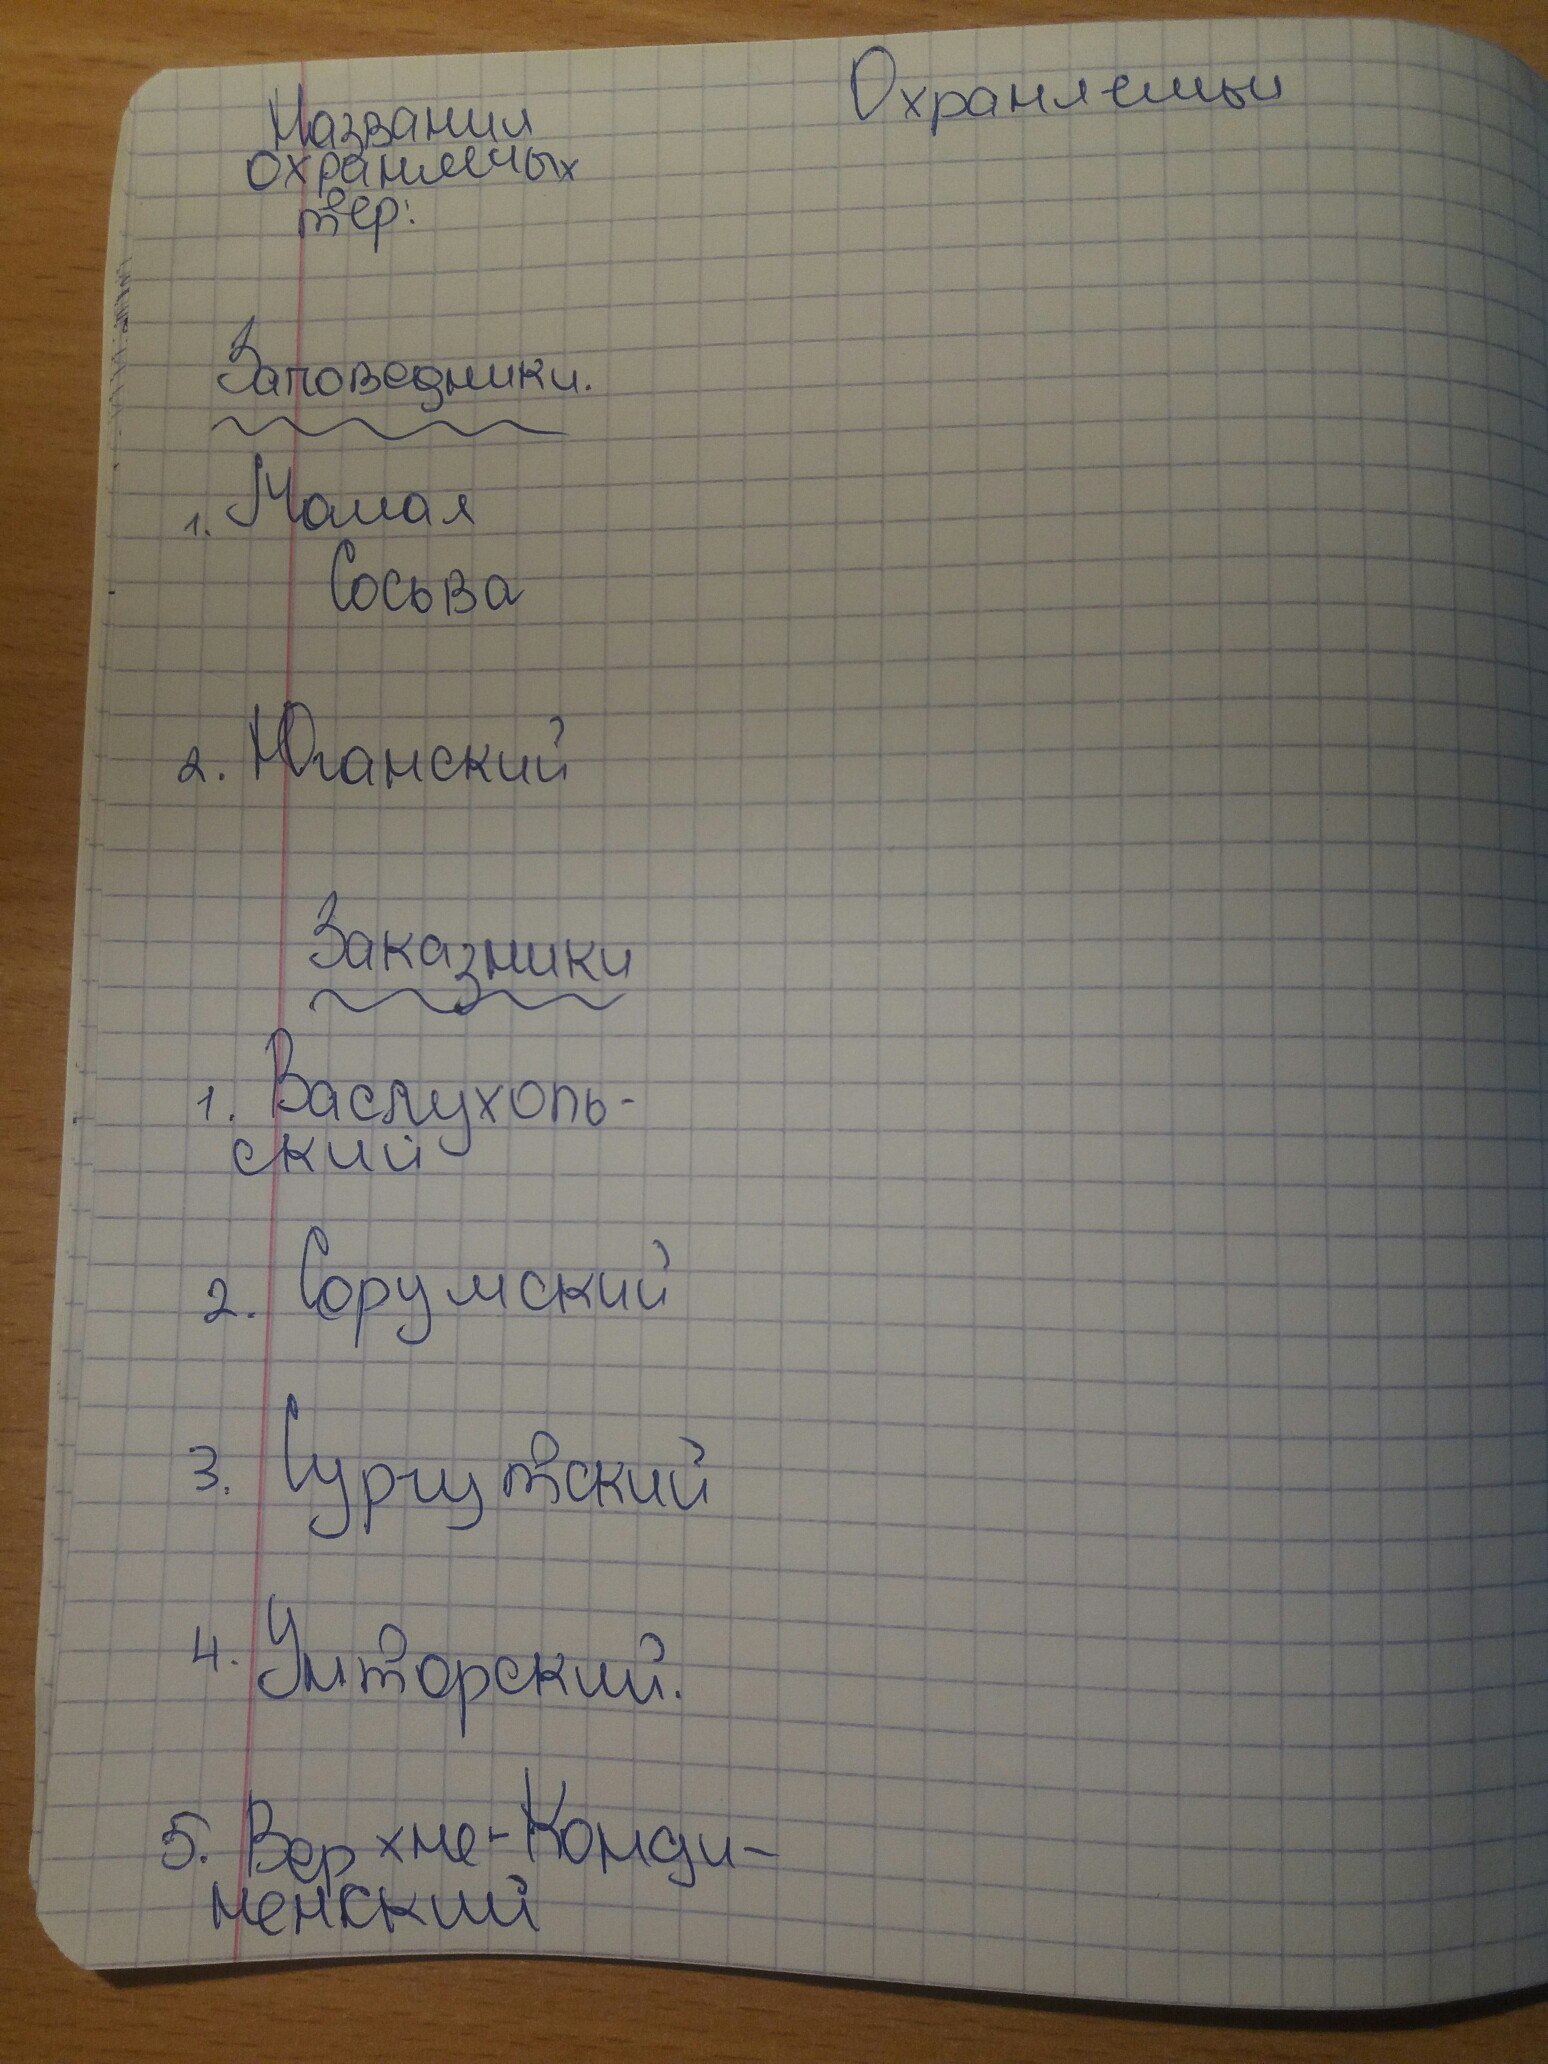 Названия
охраняемых
тер:
Охраняемы
Заповедники.
1. Малая
Сосьва
2. Юганский
Заказники
1. Васпухоль-
ский
2. Сорумский
3. Сургутский
4. Унторский.
5. Верхне-Конди-
ненский